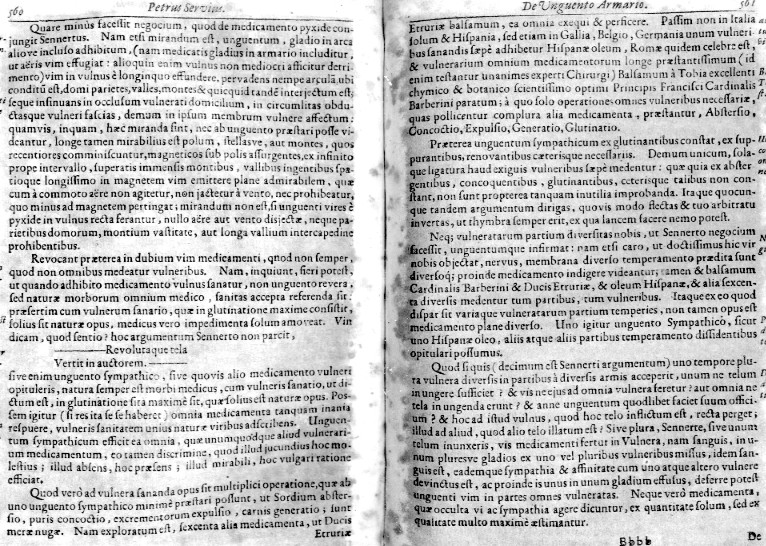 560
Petrus Servius.
Quare minus facessit negocium, quod de medicamento pyxide con-
jungit Sennertus. Nam etsi mirandum est, unguentum, gladio in arca
alióve incluso adhibitum, (nam medicatis gladius in armario includitur,
ut aëris vim effugiat: alioquin enim vulnus non mediocri afficitur detri-
mento) vim in vulnus è longinquo effundere, pervadens nempe arculâ, ubi
conditû est, domi parietes, valles, montes & quicquid tandê interjectum est;
seque insinuans in occlusum vulnerati domicilium, in circumlitas obdu-
ctasque vulneri fascias, demum in ipsum membrum vulnere affectum:
quamvis, inquam, hæc miranda sint, nec ab unguento præstari posse vi-
deantur, longe tamen mirabilius est polum, stellasve, aut montes, quos
recentiores comminiscuntur, magneticos sub polis assurgentes, ex infinito
prope intervallo, superatis immensis montibus, vallibus ingentibus spa-
tioque longissimo in magnetem vim emittere plane admirabilem, quæ
cum à commoto aëre non agitetur, non jactetur à vento, nec prohibeatur,
quo minus ad magnetem pertingat; mirandum non est, si unguenti vires è
pyxide in vulnus recta ferantur, nullo aëre aut vento disjectæ, neque pa-
rietibus domorum, montium vastitate, aut longa vallium intercapedine
prohibentibus.
Revocant præterea in dubium vim medicamenti, quod non semper,
quod non omnibus medeatur vulneribus. Nam, inquiunt, fieri potest,
ut quando adhibito medicamento vulnus sanatur, non unguento revera,
sed naturæ morborum omnium medico, sanitas accepta referenda sit:
præsertim cum vulnerum sanatio, quæ in glutinatione maxime consistit,
solius sit naturæ opus, medicus vero impedimenta solum amoveat. Vin
dicam, quod sentio? hoc argumentum Sennerto non parcit,
Revolutaque tela
Vertit in auctorem.
sive enim unguento sympathico, sive quovis alio medicamento vulneri
opituleris, natura semper est morbi medicus, cum vulneris sanatio, ut di-
ctum est, in glutinatione sita maxime sit, quæ solius est naturæ opus. Pos-
sem igitur (si res ita se se haberet) omnia medicamenta tanquam inania
respuere, vulneris sanitatem unius naturæ viribus adscribens. Unguen-
tum sympathicum efficit ea omnia, quæ unumquodque aliud vulnerari-
um medicamentum, eo tamen discrimine, quod illud jucundius hoc mo-
lestius; illud absens, hoc præsens; illud mirabili, hoc vulgari ratione
efficiat.
Quod verò ad vulnera sananda opus sit multiplici operatione, quæ ab
uno unguento sympathico minimè præstari possunt, ut Sordium abster-
sio, puris concoctio, excrementorum expulsio, carnis generatio; sunt
meræ nugæ. Nam exploratum est, sexcenta alia medicamenta, ut Ducis
Etruriæ
De Unguento Armario.
561
Etruriæ balsamum, ea omnia exequi & perficere. Passim non in Italia
solum & Hispania, sed etiam in Gallia, Belgio, Germania unum vulneri-
bus sanandis sæpè adhibetur Hispanæ oleum, Romæ quidem celebre est,
& vulnerarium omnium medicamentorum longe præstantissimum (id
enim testantur unanimes experti Chirurgi) Balsamum à Tobia excellenti
chymico & botanico scientissimo optimi Principis Francisci Cardinalis
Barberini paratum; à quo solo operationes omnes vulneribus necessariæ,
quas pollicentur complura alia medicamenta, præstantur, Abstersio,
Concoctio, Expulsio, Generatio, Glutinatio.
Præterea unguentum sympathicum ex glutinantibus constat, ex sup-
purantibus, renovantibus cæterisque necessariis. Demum unicum, sola-
que ligatura haud exiguis vulneribus sæpè medentur: quæ quia ex abster-
gentibus, concoquentibus, glutinantibus, ceterisque talibus non con-
stant, non sunt propterea tanquam inutilia improbanda. Itaque quocun-
que tandem argumentum dirigas, quovis modo flectas & tuo arbitratu
invertas, ut thymbra semper erit, ex qua lancem facere nemo potest.
Neq; vulneratarum partium diversitas nobis, ut Sennerto negocium
facessit, unguentumque infirmat: nam etsi caro, ut doctissimus hic vir
nobis objectat, nervus, membrana diverso temperamento prædita sunt
diversoq; proinde medicamento indigere videantur; tamen & balsamum
Cardinalis Barberini & Ducis Etruriæ, & oleum Hispanæ, & alia sexcen-
ta diversis medentur tum partibus, tum vulneribus. Itaque ex eo quod
dispar sit variaque vulneratarum partium temperies, non tamen opus est
medicamento plane diverso. Uno igitur unguento Sympathico, sicut
uno Hispanæ oleo, aliis atque aliis partibus temperamento dissidentibus
opitulari possumus.
Quod si quis (decimum est Sennerti argumentum) uno tempore plu-
ra vulnera diversis in partibus à diversis armis acceperit, unum ne telum
inungere sufficiet? & vis ne ejus ad omnia vulnera feretur? aut omnia ne
tela inungenda erunt? & anne unguentum quodlibet faciet suum offici-
um? & hoc ad istud vulnus, quod hoc telo inflictum est, recta perget,
illud ad aliud, quod alio telo illatum est? Sive plura, Sennerte, sive unum
telum inunxeris, vis medicamenti fertur in Vulnera, nam sanguis, in u-
num pluresve gladios ex uno vel pluribus vulneribus missus, idem san-
guis est, eademque sympathia & affinitate cum uno atque altero vulnere
devinctus est, ac proinde is unus in unum gladium effusus, deferre potest
unguenti vim in partes omnes vulneratas. Neque verò medicamenta,
quæ occulta vi ac sympathia agere dicuntur, ex quantitate solum, sed ex
qualitate multo maximè æstimantur.
Bbbb
De